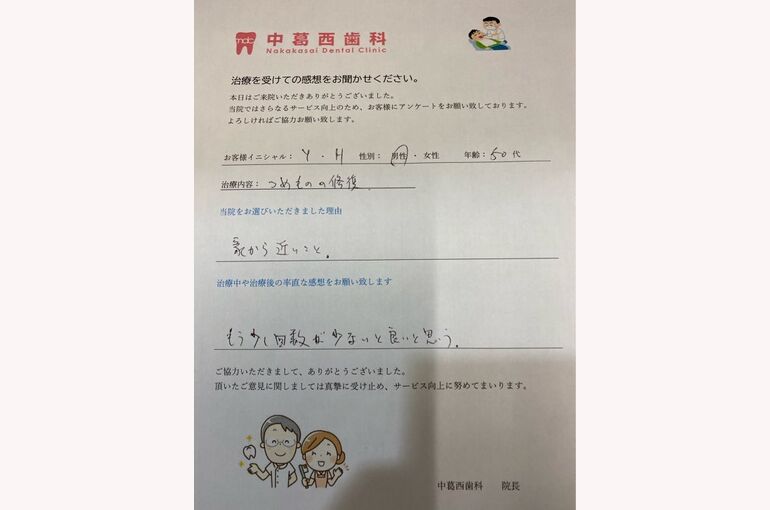 ndc 中葛西歯科
Nakakasai Dental Clinic
治療を受けての感想をお聞かせください。
本日はご来院いただきありがとうございました。
当院ではさらなるサービス向上のため、お客様にアンケートをお願い致しております。
よろしければご協力お願い致します。
お客様イニシャル： Y ・ H 性別： 男性 ・ 女性 年齢： 50 代
治療内容： つめものの修復．
当院をお選びいただきました理由
家から近いこと．
治療中や治療後の率直な感想をお願い致します
もう少し回数が少ないと良いと思う．
ご協力いただきまして、ありがとうございました。
頂いたご意見に関しましては真摯に受け止め、サービス向上に努めてまいります。
中葛西歯科 院長